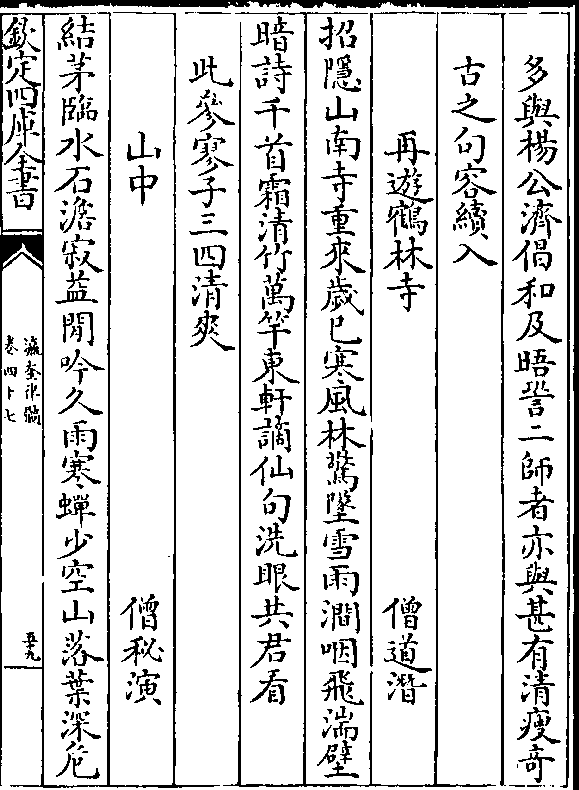 多與楊公濟倡和及晤詧二師者亦與甚有清瘦奇
古之句容續入
再遊鶴林寺 僧道潛
招隱山南寺重來歲已寒風林驚墜雪雨澗咽飛湍壁
暗詩千首霜清竹萬竿東軒謫仙句洗眼共君看
此參寥子三四清爽
山中 僧秘演
結茅臨水石澹寂益閒吟久雨寒蟬少空山落葉深危
欽定四庫全書
瀛奎律髓
卷四十七
五九